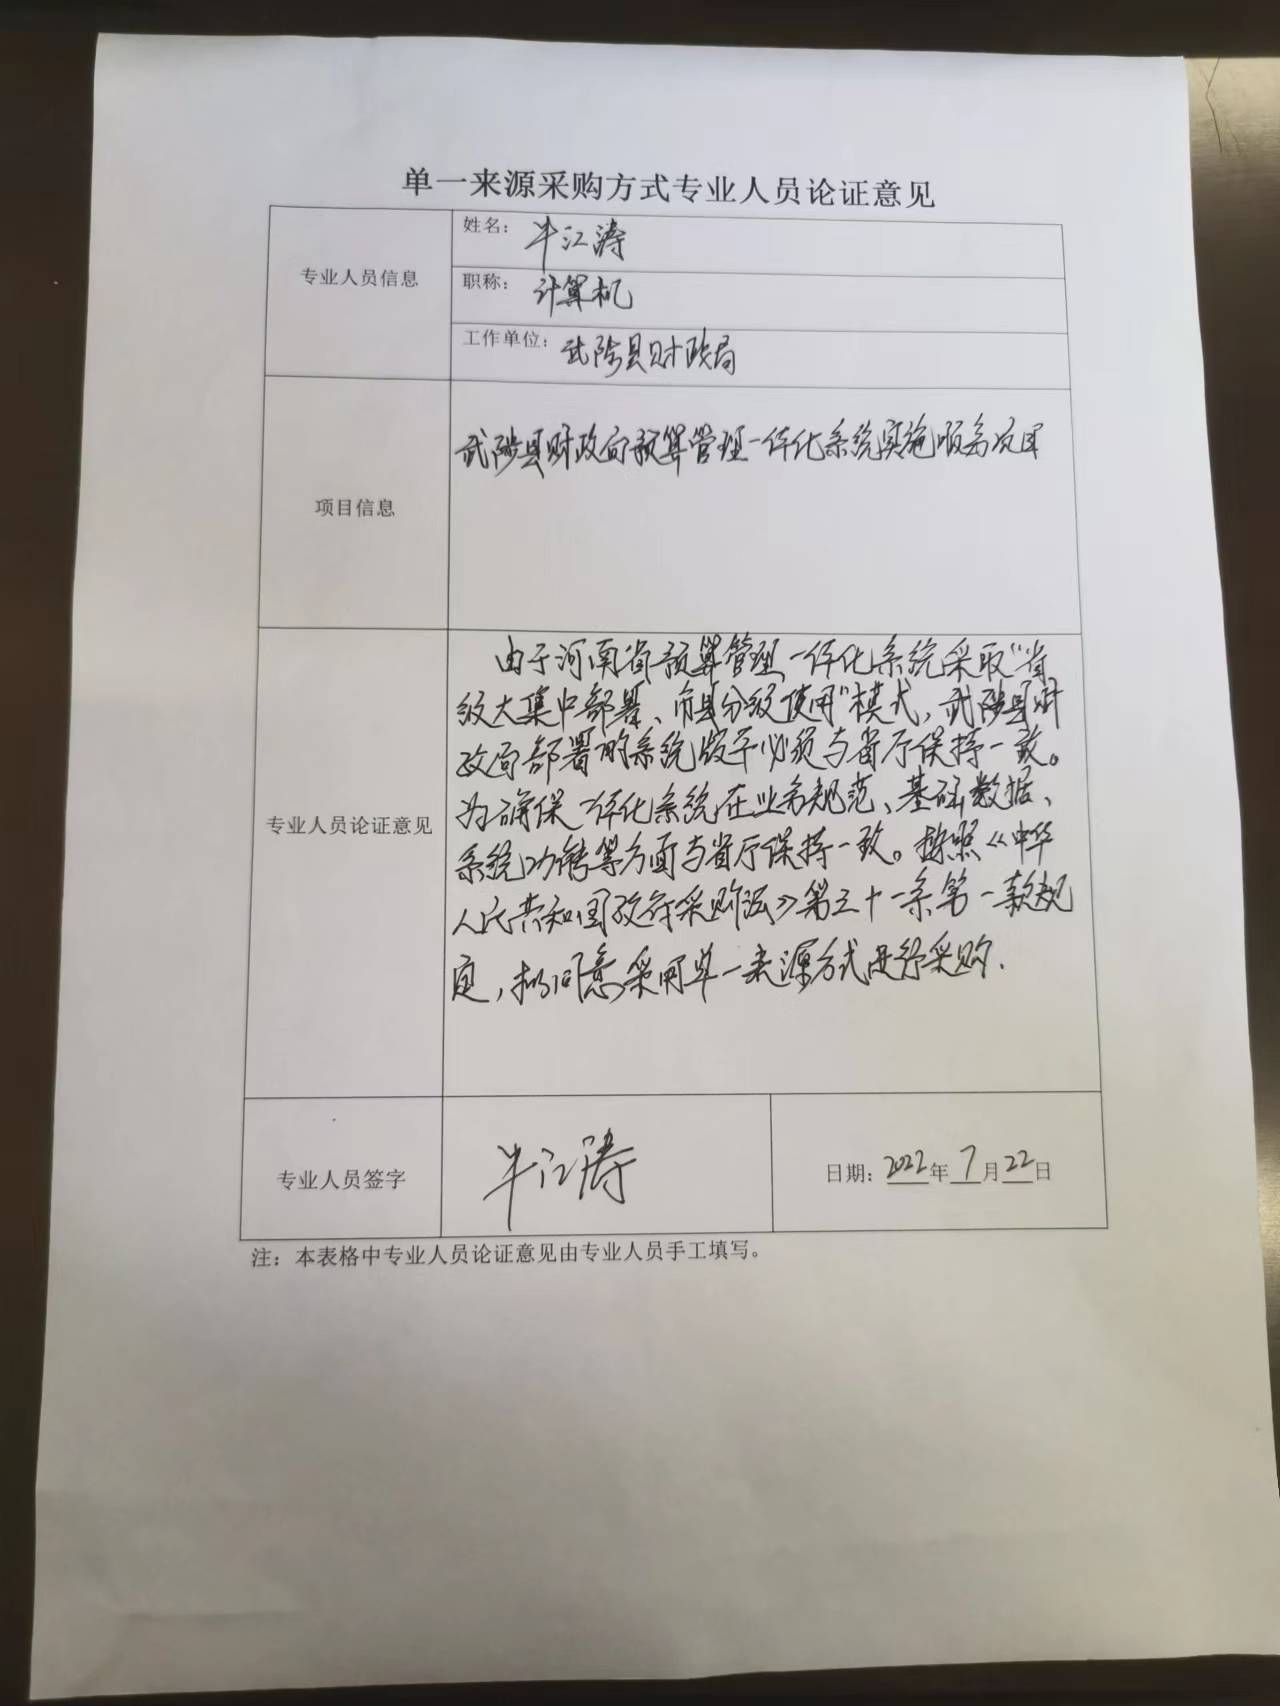 单一来源采购方式专业人员论证意见
专业人员信息
姓名：牛江涛
职称：计算机
工作单位：武陟县财政局
项目信息
武陟县财政局预算管理一体化系统实施服务项目
专业人员论证意见
由于河南省预算管理一体化系统采取“省
级大集中部署、市县分级使用”模式，武陟县财
政局部署的系统版本必须与省厅保持一致。
为确保一体化系统在业务规范、基础数据、
系统功能等方面与省厅保持一致。按照《中华
人民共和国政府采购法》第三十一条第一款规
定，拟同意采用单一来源方式进行采购.
专业人员签字
牛江涛
日期：2022年7月22日
注：本表格中专业人员论证意见由专业人员手工填写。